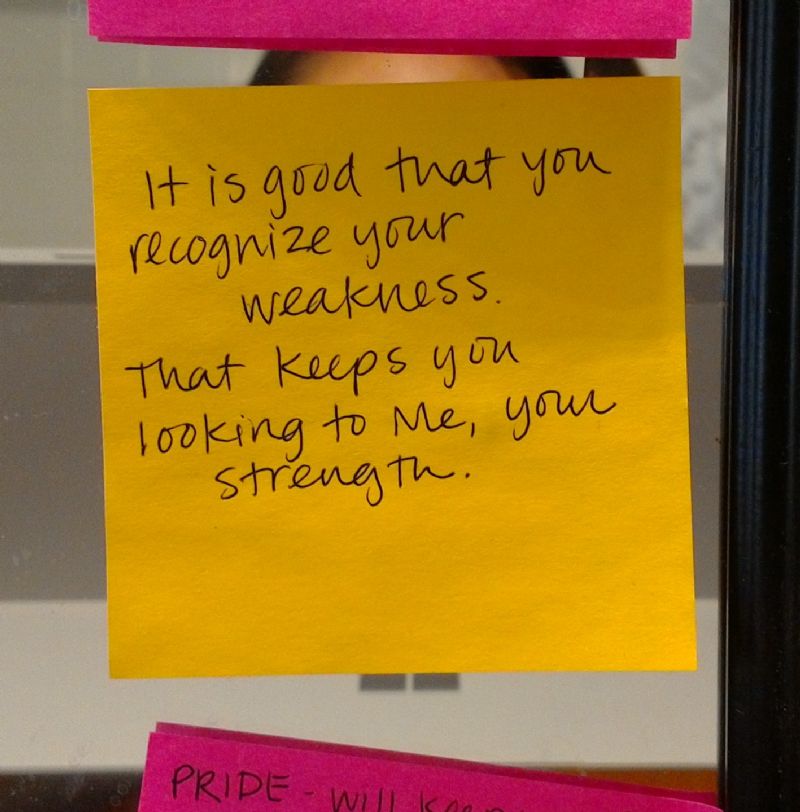 It is good that you
recognize your
weakness.
That keeps you
looking to Me, your
strength.
PRIDE - will keep